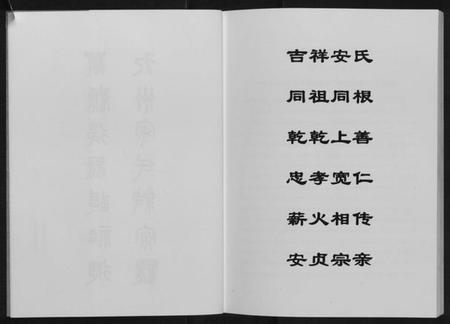 吉祥安氏
同祖同根
乾乾上善
忠孝宽仁
薪火相传
安贞宗亲